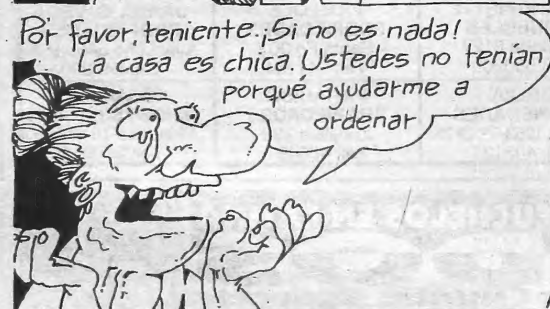 Por favor, teniente. ¡Si no es nada!
La casa es chica. Ustedes no tenían
porqué ayudarme a
ordenar